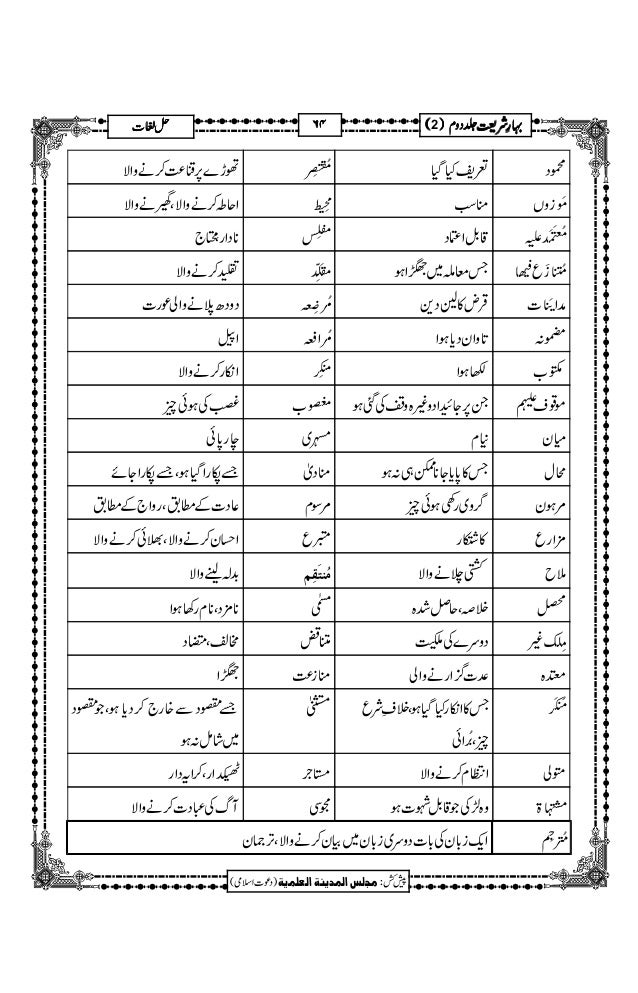 بہارِ شریعت جلد دوم (2) ۶۴ حل لغات
محمود تعریف کیا گیا مُقتصِر تھوڑے پر قناعت کرنے والا
مَوزوں مناسب مُحِیط احاطہ کرنے والا، گھیرنے والا
مُعتَمَد علیہ قابل اعتماد مفلِس نادار محتاج
مُتنازَع فیھا جس معاملہ میں جھگڑا ہو مقلِّد تقلید کرنے والا
مداینات قرض کا لین دین مُرضِعہ دودھ پلانے والی عورت
مضمونہ تاوان دیا ہوا مُرافعہ اپیل
مکتوب لکھا ہوا منکِر انکار کرنے والا
موقوف علیہم جن پر جائیداد وغیرہ وقف کی گئی ہو مغصوب غصب کی ہوئی چیز
میان نیام مسہری چارپائی
محال جس کا پایا جانا ممکن ہی نہ ہو منادیٰ جسے پکارا گیا ہو، جسے پکارا جائے
مرہون گروی رکھی ہوئی چیز مرسوم عادت کے مطابق، رواج کے مطابق
مزارع کاشتکار متبرع احسان کرنے والا، بھلائی کرنے والا
ملاح کشتی چلانے والا مُنتَقِم بدلہ لینے والا
محصل خلاصہ، حاصل شدہ مسمّٰی نامزد، نام رکھا ہوا
مِلک غیر دوسرے کی ملکیت متناقض مخالف، متضاد
معتدہ عدت گزارنے والی منازعت جھگڑا
مُنکَر جس کا انکار کیا گیا ہو، خلافِ شرع مستثنٰی جسے مقصود سے خارج کر دیا ہو، جو مقصود
چیز، بُرائی میں شامل نہ ہو
متولی انتظام کرنے والا مستاجر ٹھیکدار، کرایہ دار
مشتہاۃ وہ لڑکی جو قابل شہوت ہو مجوسی آگ کی عبادت کرنے والا
مُترجم ایک زبان کی بات دوسری زبان میں بیان کرنے والا، ترجمان
پیش کش: مجلس المدینة العلمیة (دعوت اسلامی)